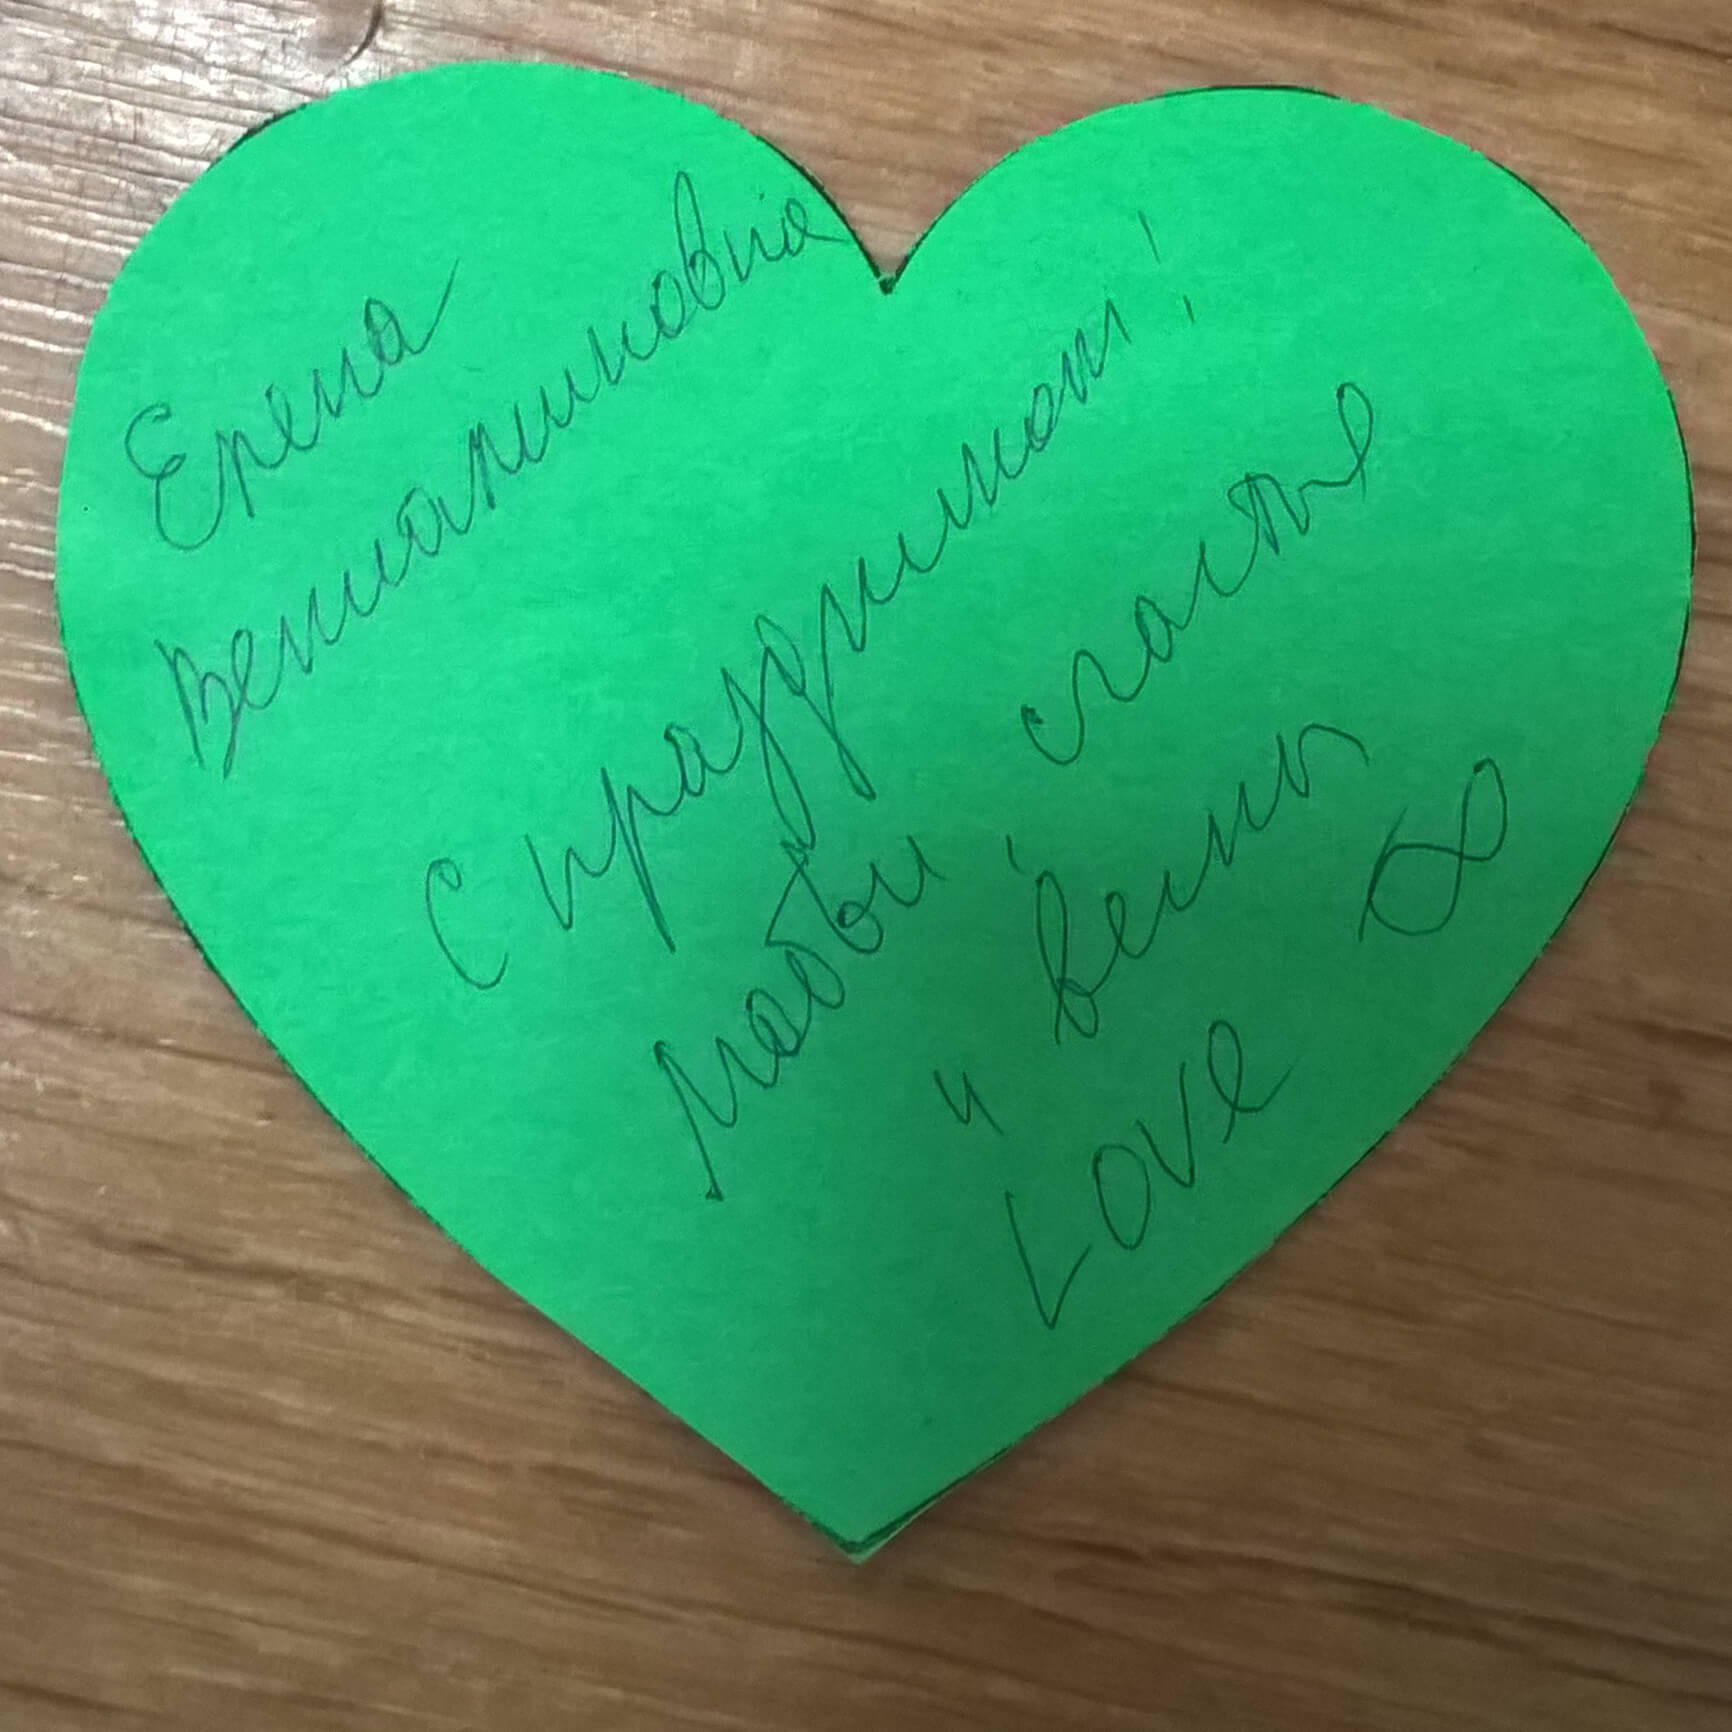 Елена
Вениаминовна
С праздником!
Любви, счастье
и весны
Love ∞